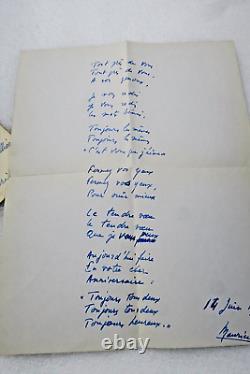 Tout près de vous
Tout près de vous.
A vos genoux.
Je vous redis
Je vous redis
les mots bénis.
Toujours les mêmes
Toujours les mêmes
"C'est vous que j'aime
Fermez vos yeux
Fermez vos yeux.
Pour mieux
Le tendre vœu
Le tendre vœu
Que je veux
Aujourd'hui faire
En votre cher
Anniversaire:
"Toujours tous deux
Toujours tous deux
Toujours heureux."
14 Juin
Maurice